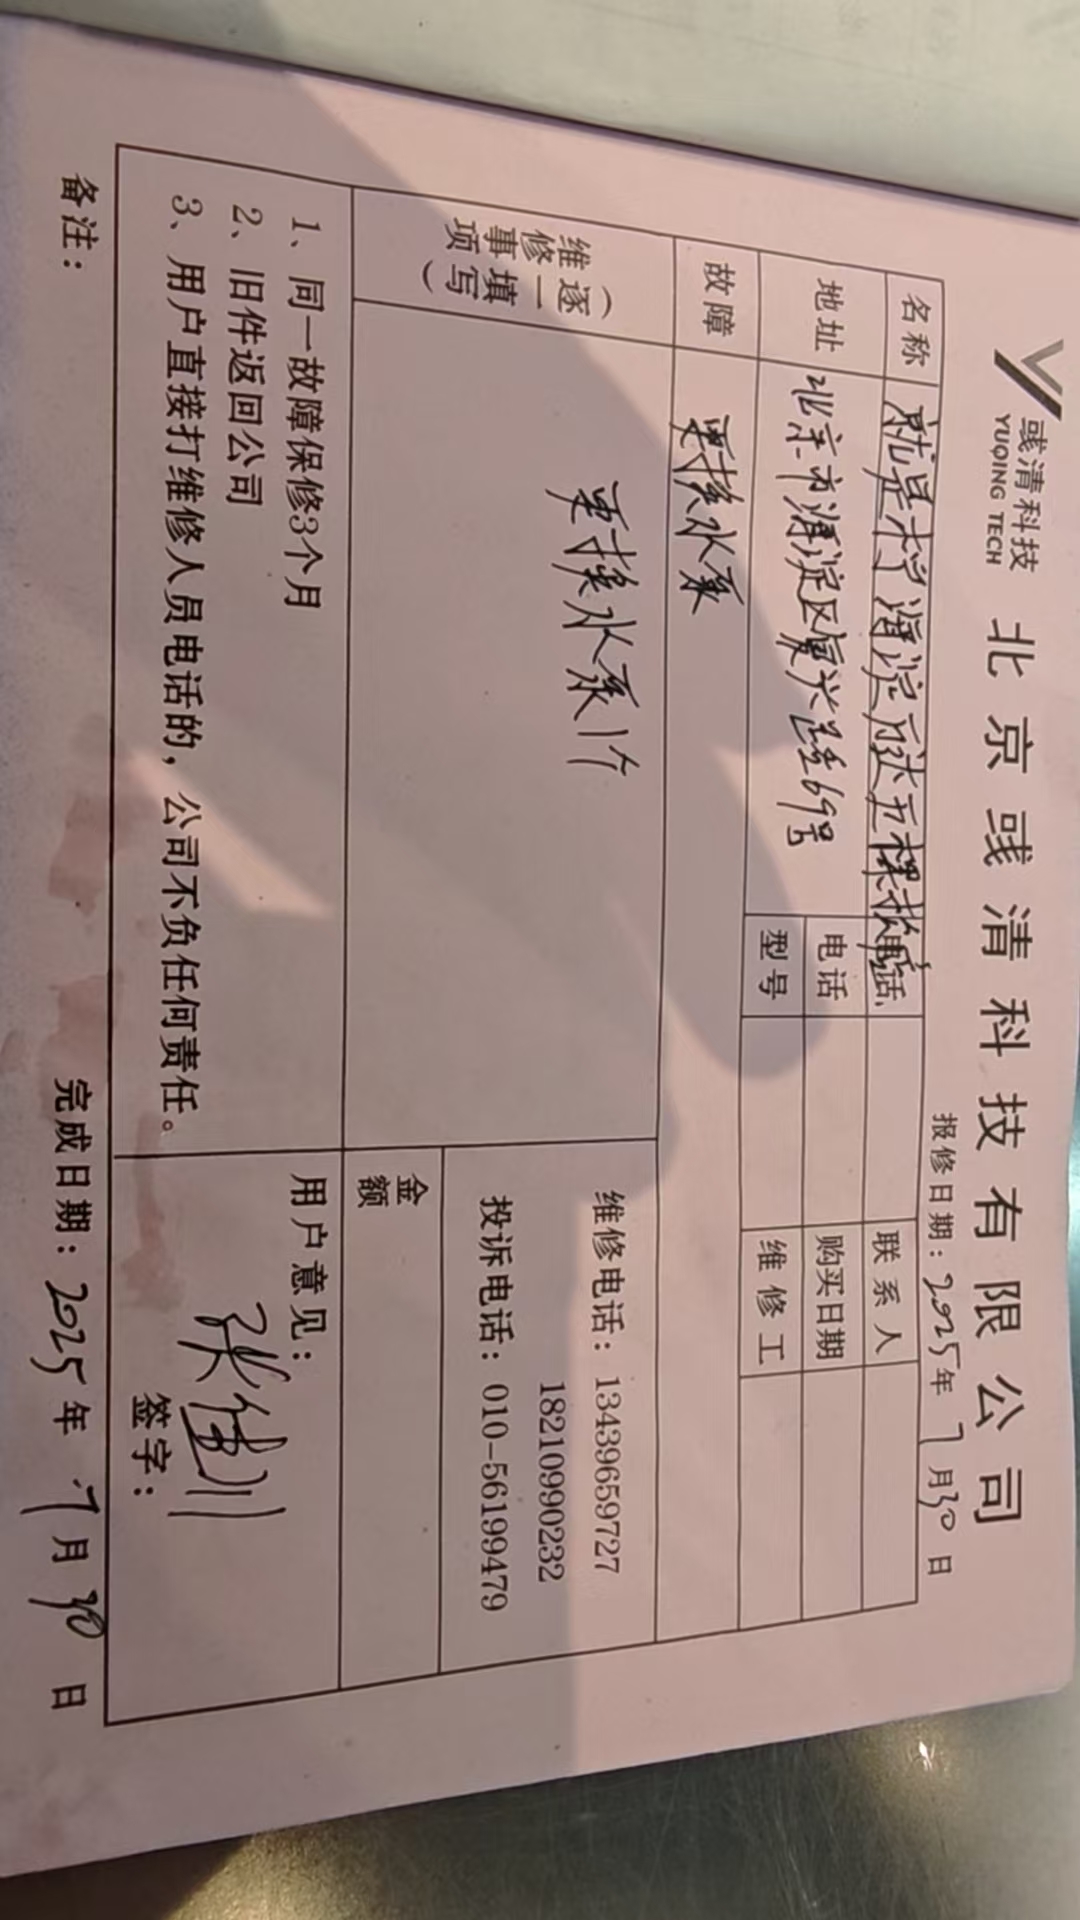 彧清科技
YUQING TECH
北京彧清科技有限公司
报修日期：2025年7月30日
名称 就是 海淀 万达五棵松店 电话 联系人
地址 北京市海淀区复兴路69号 电话 购买日期
型号 维修工
故障 更换水泵
维修事项
（逐一填写）
更换水泵1个
维修电话：13439659727
18210990232
投诉电话：010-56199479
金额
1、同一故障保修3个月
2、旧件返回公司
3、用户直接打维修人员电话的，公司不负任何责任。
用户意见：
签字：
备注：
完成日期：2025年7月30日